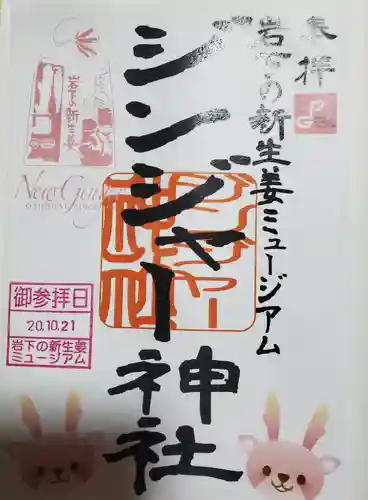 奉拝
岩下の新生姜ミュージアム
ジンジャー神社
岩下の新生姜
New Ginger
御参拝日
'20.10.21
岩下の新生姜
ミュージアム